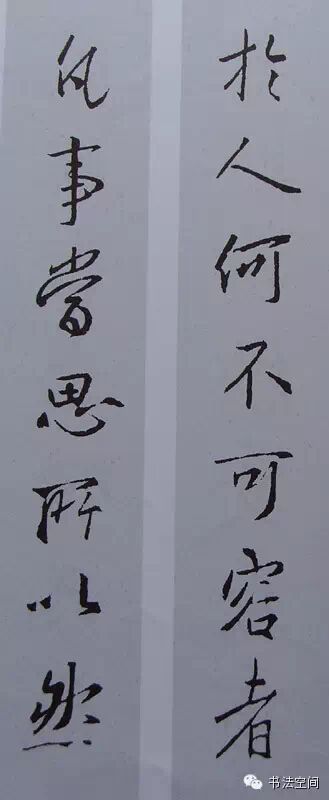 於人何不可容者
凡事當思所以然
书法空间